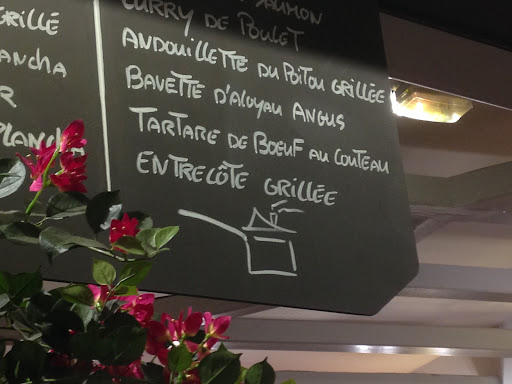 GRILLÉ
ANCHA
R
PLANCHA
SAUMON
CURRY DE POULET
ANDOUILLETTE DU POITOU GRILLÉE
BAVETTE D'ALOYAU ANGUS
TARTARE DE BOEUF AU COUTEAU
ENTRECÔTE GRILLÉE